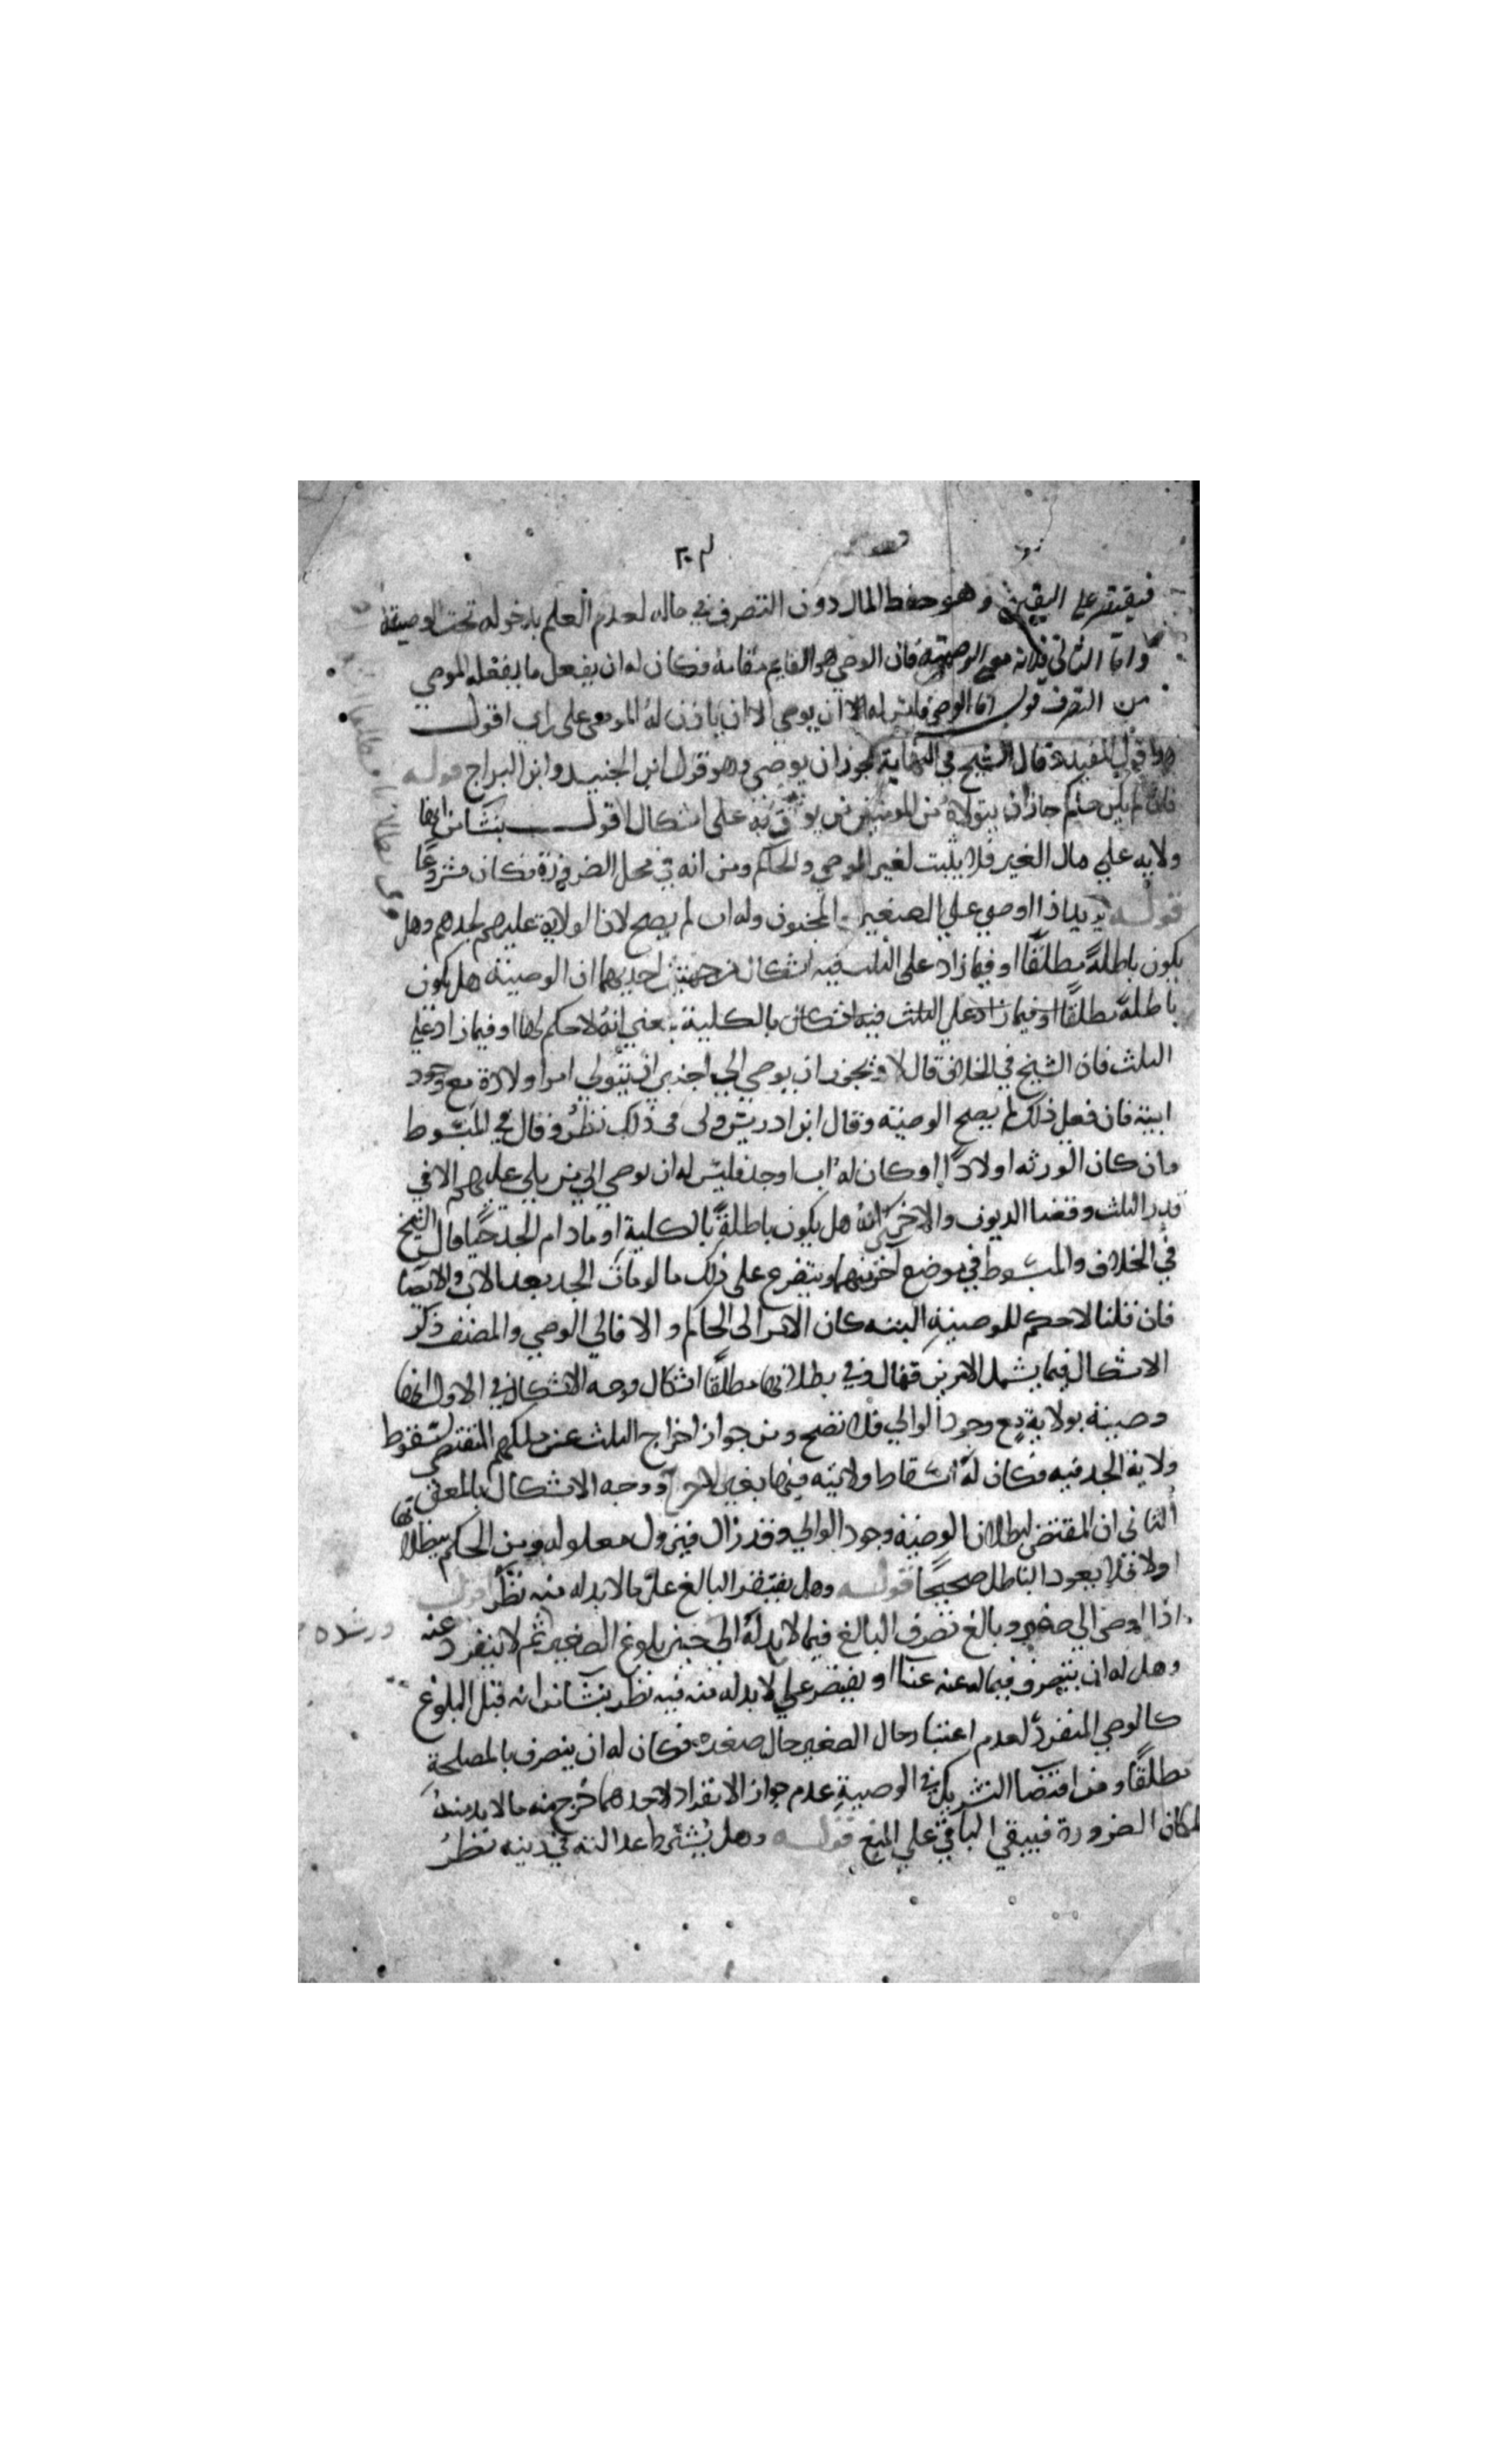 فيقتصر على اليقين وهو حفظ المال دون التصرف في ماله لعدم العلم بدخوله تحت الوصية
واما الثاني فلانه معنى الوصية فان الوصي هو القايم مقامه فكان له ان يفعل ما يفعله الموصي
من التصرف قوله اما الوصي فليس له ان يوصي الا ان ياذن له الموصي على راي اقول
هذا قول المفيد وقال الشيخ في النهاية يجوز ان يوصي وهو قول ابن الجنيد وابن البراج قوله
فان لم يكن حاكم جاز ان يتولاه من المومنين من يوثق به على اشكال اقول ينشا من انها
ولايه على مال الغير فلا يثبت لغير الموصي والحاكم ومن انه في محل الضرورة فكان مشروعا
قوله يريد اذا اوصي علي الصغير المجنون وله اب لم يصح لان الولاية عليهم لجدهم وهل
يكون باطلة مطلقا او فيما زاد على الثلث فيه اشكال من جهتين احديهما ان الوصيته هل يكون
باطلة مطلقا او فيما زاد علي الثلث فيه اشكال بالكلية بمعني انه لا حكم لها او فيما زاد علي
الثلث فان الشيخ في الخلاف قال لا يجوز ان يوصي الي اجنبي ان يتولي امر اولاده مع وجود
ابيه فان فعل ذلك لم يصح الوصيته وقال ابن ادريس ولى فى ذلك نظر وقال في المبسوط
فان كان الورثه اولادا وكان له اب او جد فليس له ان يوصي الي من يلي عليهم الا في
قدر الثلث وقضا الديون والاخرى انه هل يكون باطلة بالكلية او ما دام الجد حيا قال الشيخ
في الخلاف والمبسوط في موضع اخر منهما ويتفرع على ذلك ما لو مات الجد بعد الاب والايصا
فان قلنا لا حكم للوصية البته كان الامر الى الحاكم والا فالي الوصي والمصنف ذكر
الاشكال فيما يشمل الامرين فقال وفي بطلانها مطلقا اشكال وجه الاشكال في الاول انها
وصيته بولاية مع وجود الوالي فلا تصح ومن جواز اخراج الثلث عن ملكهم المقتضي لسقوط
ولاية الجد فيه فكان له اسقاط ولايته فيها بغير ووجه الاشكال بالمعنى
الثاني ان المقتضي لبطلان الوصية وجود الوالي وقد زال فيزول معلوله ومن الحكم ببطلانها
اولا فلا يعود الباطل صحيحا قوله وهل يقتصر البالغ على ما لا بد له منه نظر اقول
اذا اوصى الي صغير وبالغ تصرف البالغ فيما لا بد له الى حين بلوغ الصغير ثم لا ينفرد عنه
ورشده
وهل له ان يتصرف فيما له عنه عنا او يقتصر علي لا بد له منه فيه نظر ينشا من انه قبل البلوغ
كالوصي المنفرد لعدم اعتبار حال الصغير حال صغره فكان له ان يتصرف بالمصلحة
مطلقا ومن اقتضا التشريك في الوصية عدم جواز الانفراد لاحدهما خرج منه ما لا بد منه
لمكان الضرورة فيبقي الباقي علي المنع قوله وهل يشترط عدالته في دينه نظر